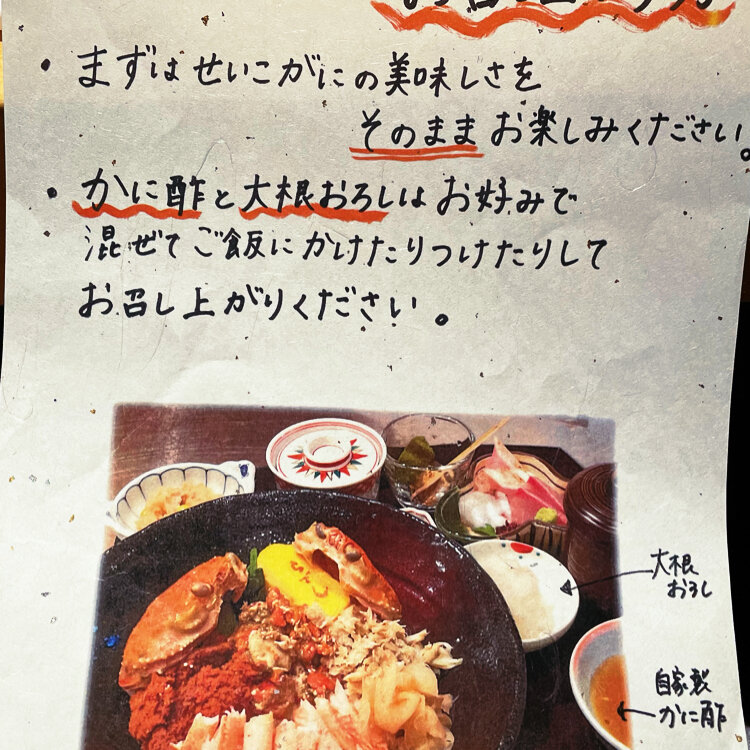 ・まずはせいこがにの美味しさを
そのままお楽しみください。
・かに酢と大根おろしはお好みで
混ぜてご飯にかけたりつけたりして
お召し上がりください。
大根
おろし
自家製
かに酢